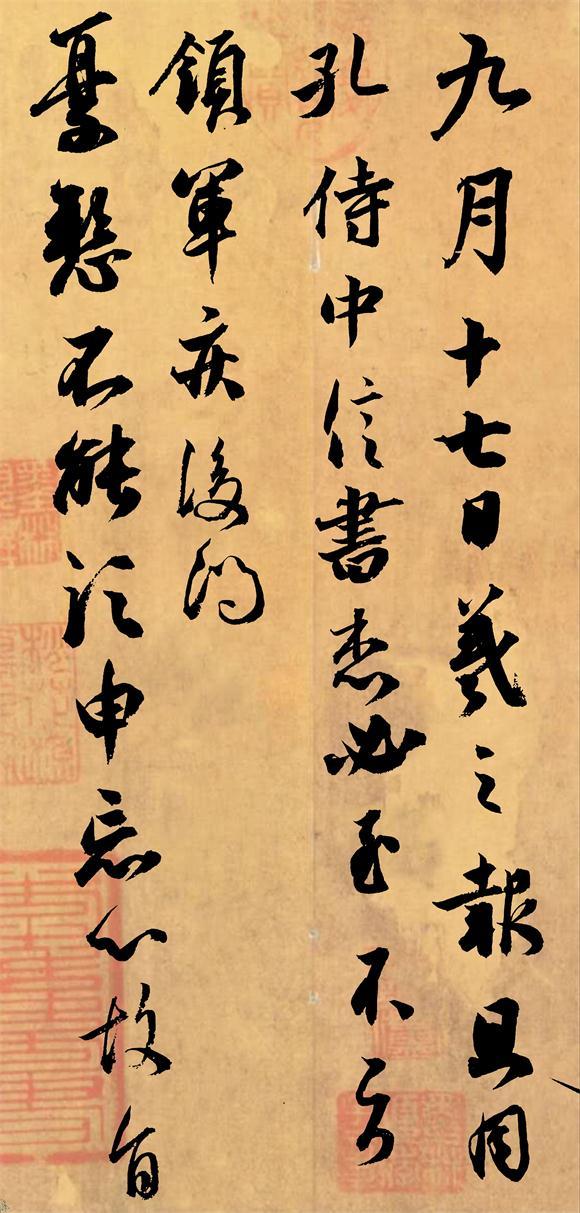 九月十七日羲之報且因
孔侍中信書想必至不知
領軍疾後問
憂懸不能須臾忘心故旨